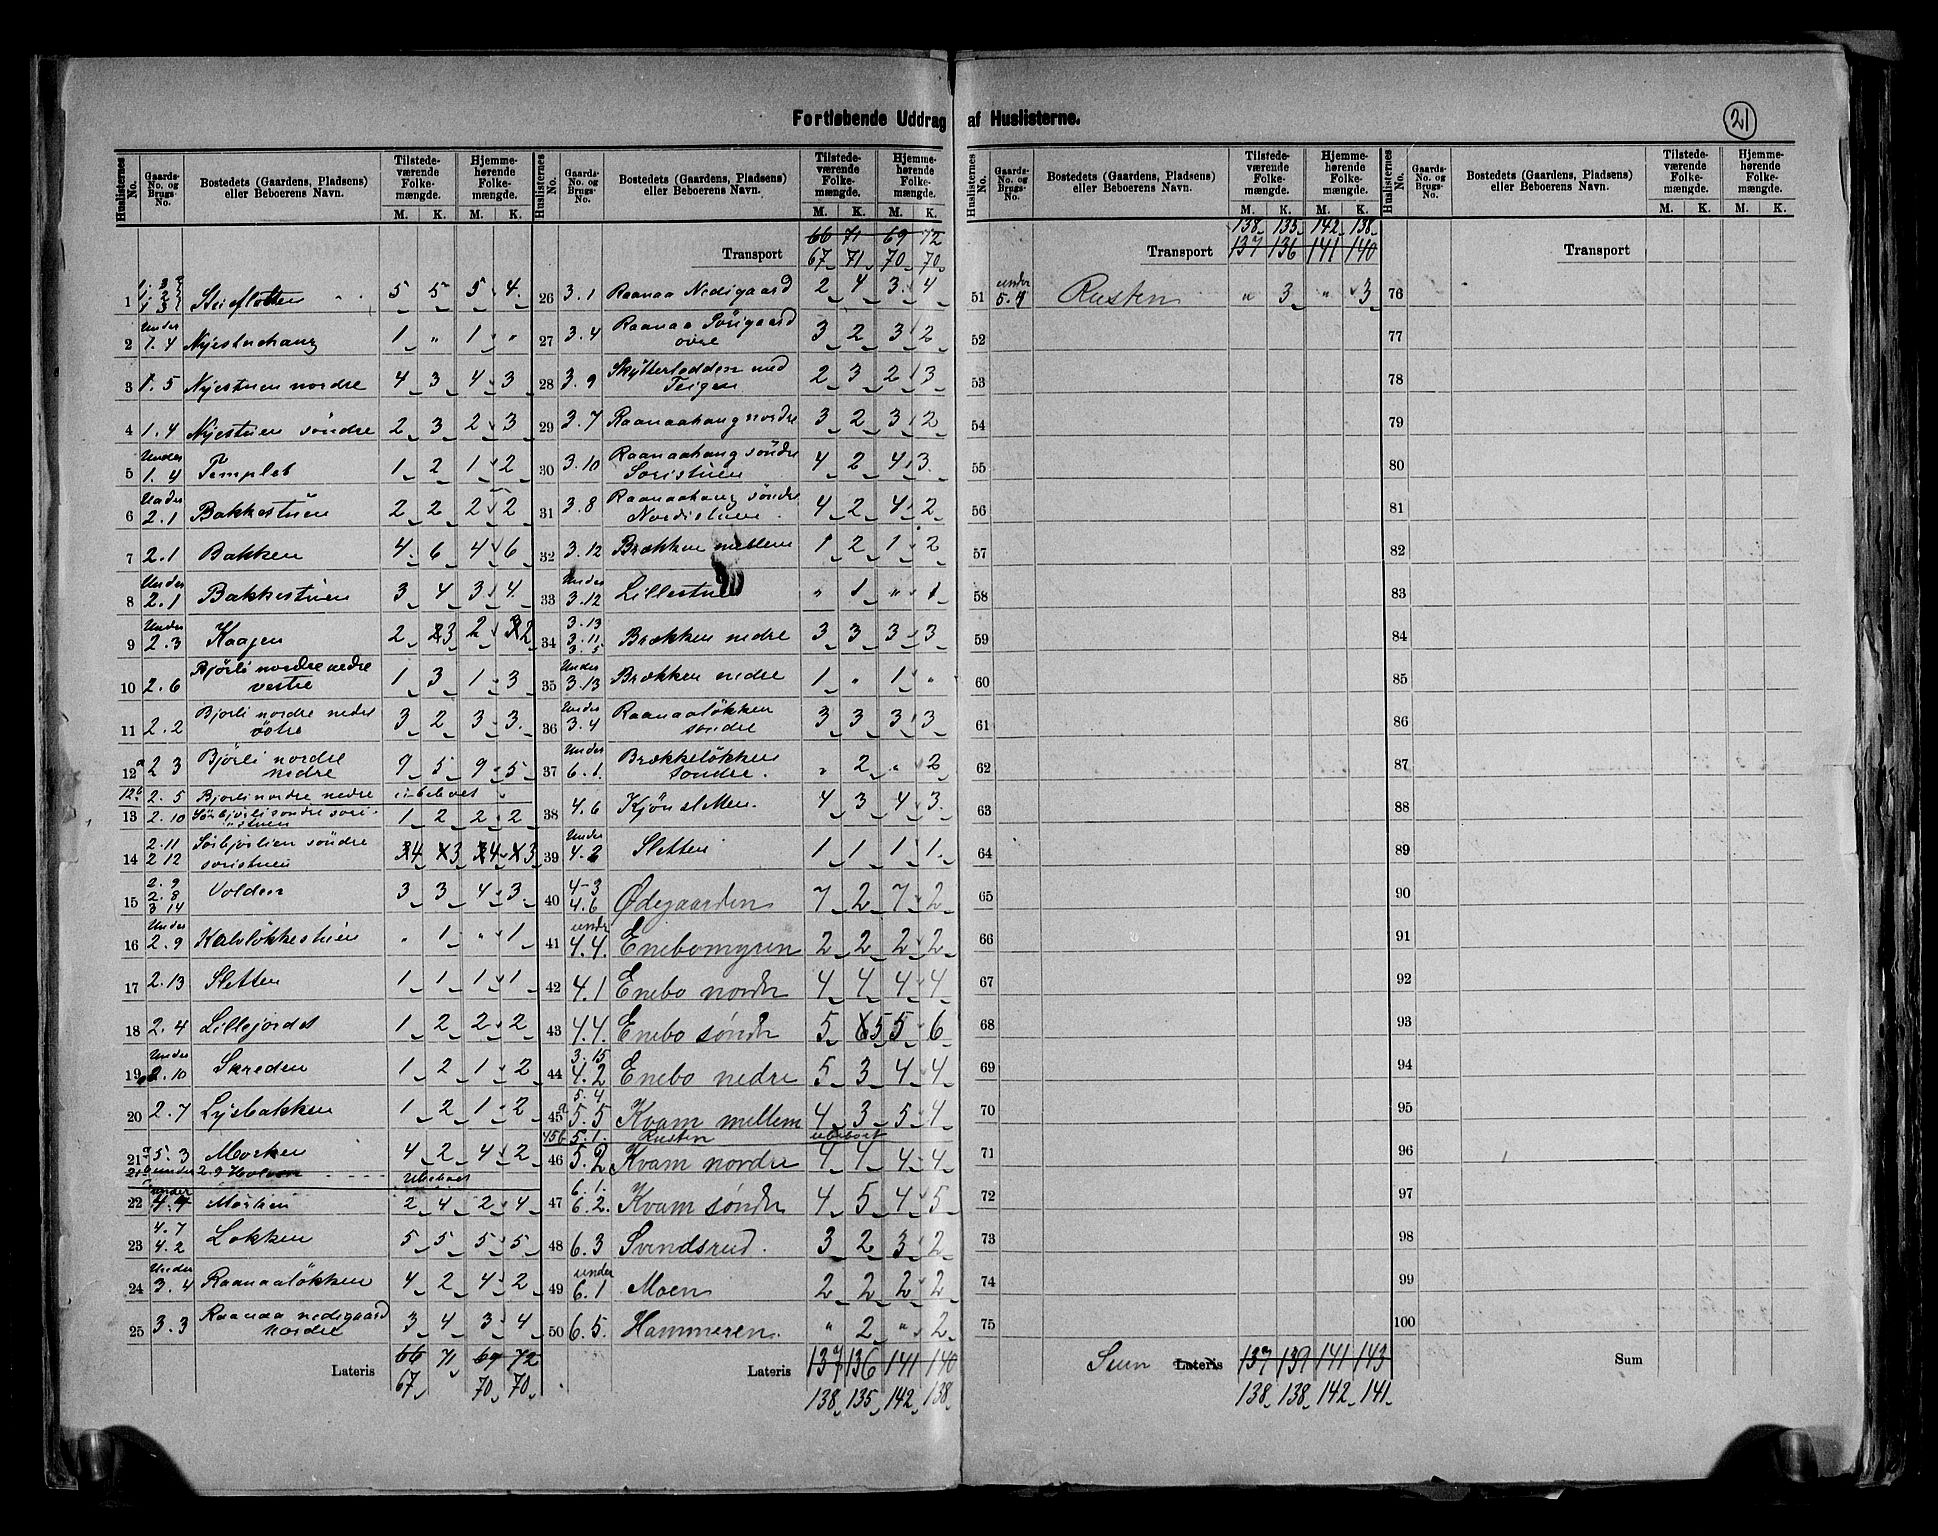 Fortløbende Uddrag af Huslisterne.
21
Huslisternes No. Gaards-No. og Brugs-No. Bostedets (Gaardens, Pladsens) eller Beboerens Navn. Tilstedeværende Folkemængde. M. K. Hjemmehørende Folkemængde. M. K.
1 Stueflotten 5 5 5 4
2 Under 1.4 Nyestuehaug 1 " 1 "
3 1.5 Nyestuen nordre 4 3 4 3
4 1.4 Nyestuen søndre 2 3 2 3
5 Under 1.4 Templet 1 2 1 2
6 Under 2.1 Bakkestuen 2 2 2 2
7 2.1 Bakken 4 6 4 6
8 Under 2.1 Bakkestuen 3 4 3 4
9 Under 2.3 Haagen 2 3 2 2
10 2.6 Bjørli nordre nedre vestre 1 3 1 3
11 2.2 Bjorli nordre nedre östre 3 2 3 3
12a 2 3 Bjørli nordre nedre 9 5 9 5
12b 2.5 Bjorli nordre nedre ubeboet
13 2.10 Sörbjorli søndre sori-stuen 1 2 2 2
14 2.11 2 12 Sörbjørlien söndre soristuen 4 3 4 3
15 2.9 2.8 3 14 Volden 3 3 4 3
16 Under 2.9 Kalvløkkestuen " 1 " 1
17 2.13 Sletten 1 1 1 1
18 2.4 Lillejordet 1 2 2 2
19 Under 2.10 Skreden 1 2 1 2
20 2.7 Lysbakken 1 2 1 2
21a 5.3 Morken 4 2 4 2
21b under 2.9 Holen Ubeboet
22 under 4.4 Moshuen 2 4 2 4
23 4.7 4.2 Løkken 5 5 5 5
24 Under 3.4 Raanaaløkken 4 2 4 2
25 3.3 Raanaa nedigaard nordre 3 4 3 4
Lateris 66 71 69 72
67 70 70
Transport 66 71 69 72
67 71 70 70
26 3.1 Raanaa Nedigaard 2 4 3 4
27 3.4 Raanaa Pörigaard ovre 3 2 3 2
28 3.9 Skytterlødden med Teigen 2 3 2 3
29 3.7 Raanaahaug nordre 3 2 3 2
30 3.10 Raanaahaug søndre Soristuen 4 2 4 3
31 3.8 Raanaahaug søndre Nordistuen 4 2 4 2
32 3.12 Brækken mellem 1 2 1 2
33 Under 3.12 Lillestuen " 1 " 1
34 3.13 3.11 3.5 Brækken nedre 3 3 3 3
35 Under 3.13 Brækken nedre 1 " 1 "
36 Under 3.4 Raanaaløkken søndre 3 3 3 3
37 Under 6.1. Brækkeløkken søndre. " 2 " 2
38 4.6 Kjönsletten. 4 3 4 3
39 Under 4.2 Sletten 1 1 1 1
40 4-3 4.6 Ødegaarden 7 2 7 2
41 under 4.4. Enebomyren 2 2 2 2
42 4.1 Enebo nordre 4 4 4 4
43 4.4. Enebo søndre 5 5 5 6
44 3.15 4.2 Enebo nedre 5 3 4 4
45a 5.4 5.5 Kvam mellem 4 3 5 4
45b 5.1. Rusten ubeboet
46 5.2 Kvam nordre 4 4 4 4
47 6.1. 6.2. Kvam søndre 4 5 4 5
48 6.3 Svendsrud. 3 2 3 2
49 under 6.1 Moen 2 2 2 2
50 6.5. Hammeren. " 2 " 2
Lateris 137 136 141 140
138 135 142 138
Huslisternes No. Gaards-No. og Brugs-No. Bostedets (Gaardens, Pladsens) eller Beboerens Navn. Tilstedeværende Folkemængde. M. K. Hjemmehørende Folkemængde. M. K.
138 135 142 138
Transport 137 136 141 140
51 under 5.4 Rusten " 3 " 3
52
53
54
55
56
57
58
59
60
61
62
63
64
65
66
67
68
69
70
71
72
73
74
75
Sum Lateris 137 139 141 143
138 138 142 141
Transport
76
77
78
79
80
81
82
83
84
85
86
87
88
89
90
91
92
93
94
95
96
97
98
99
100
Sum